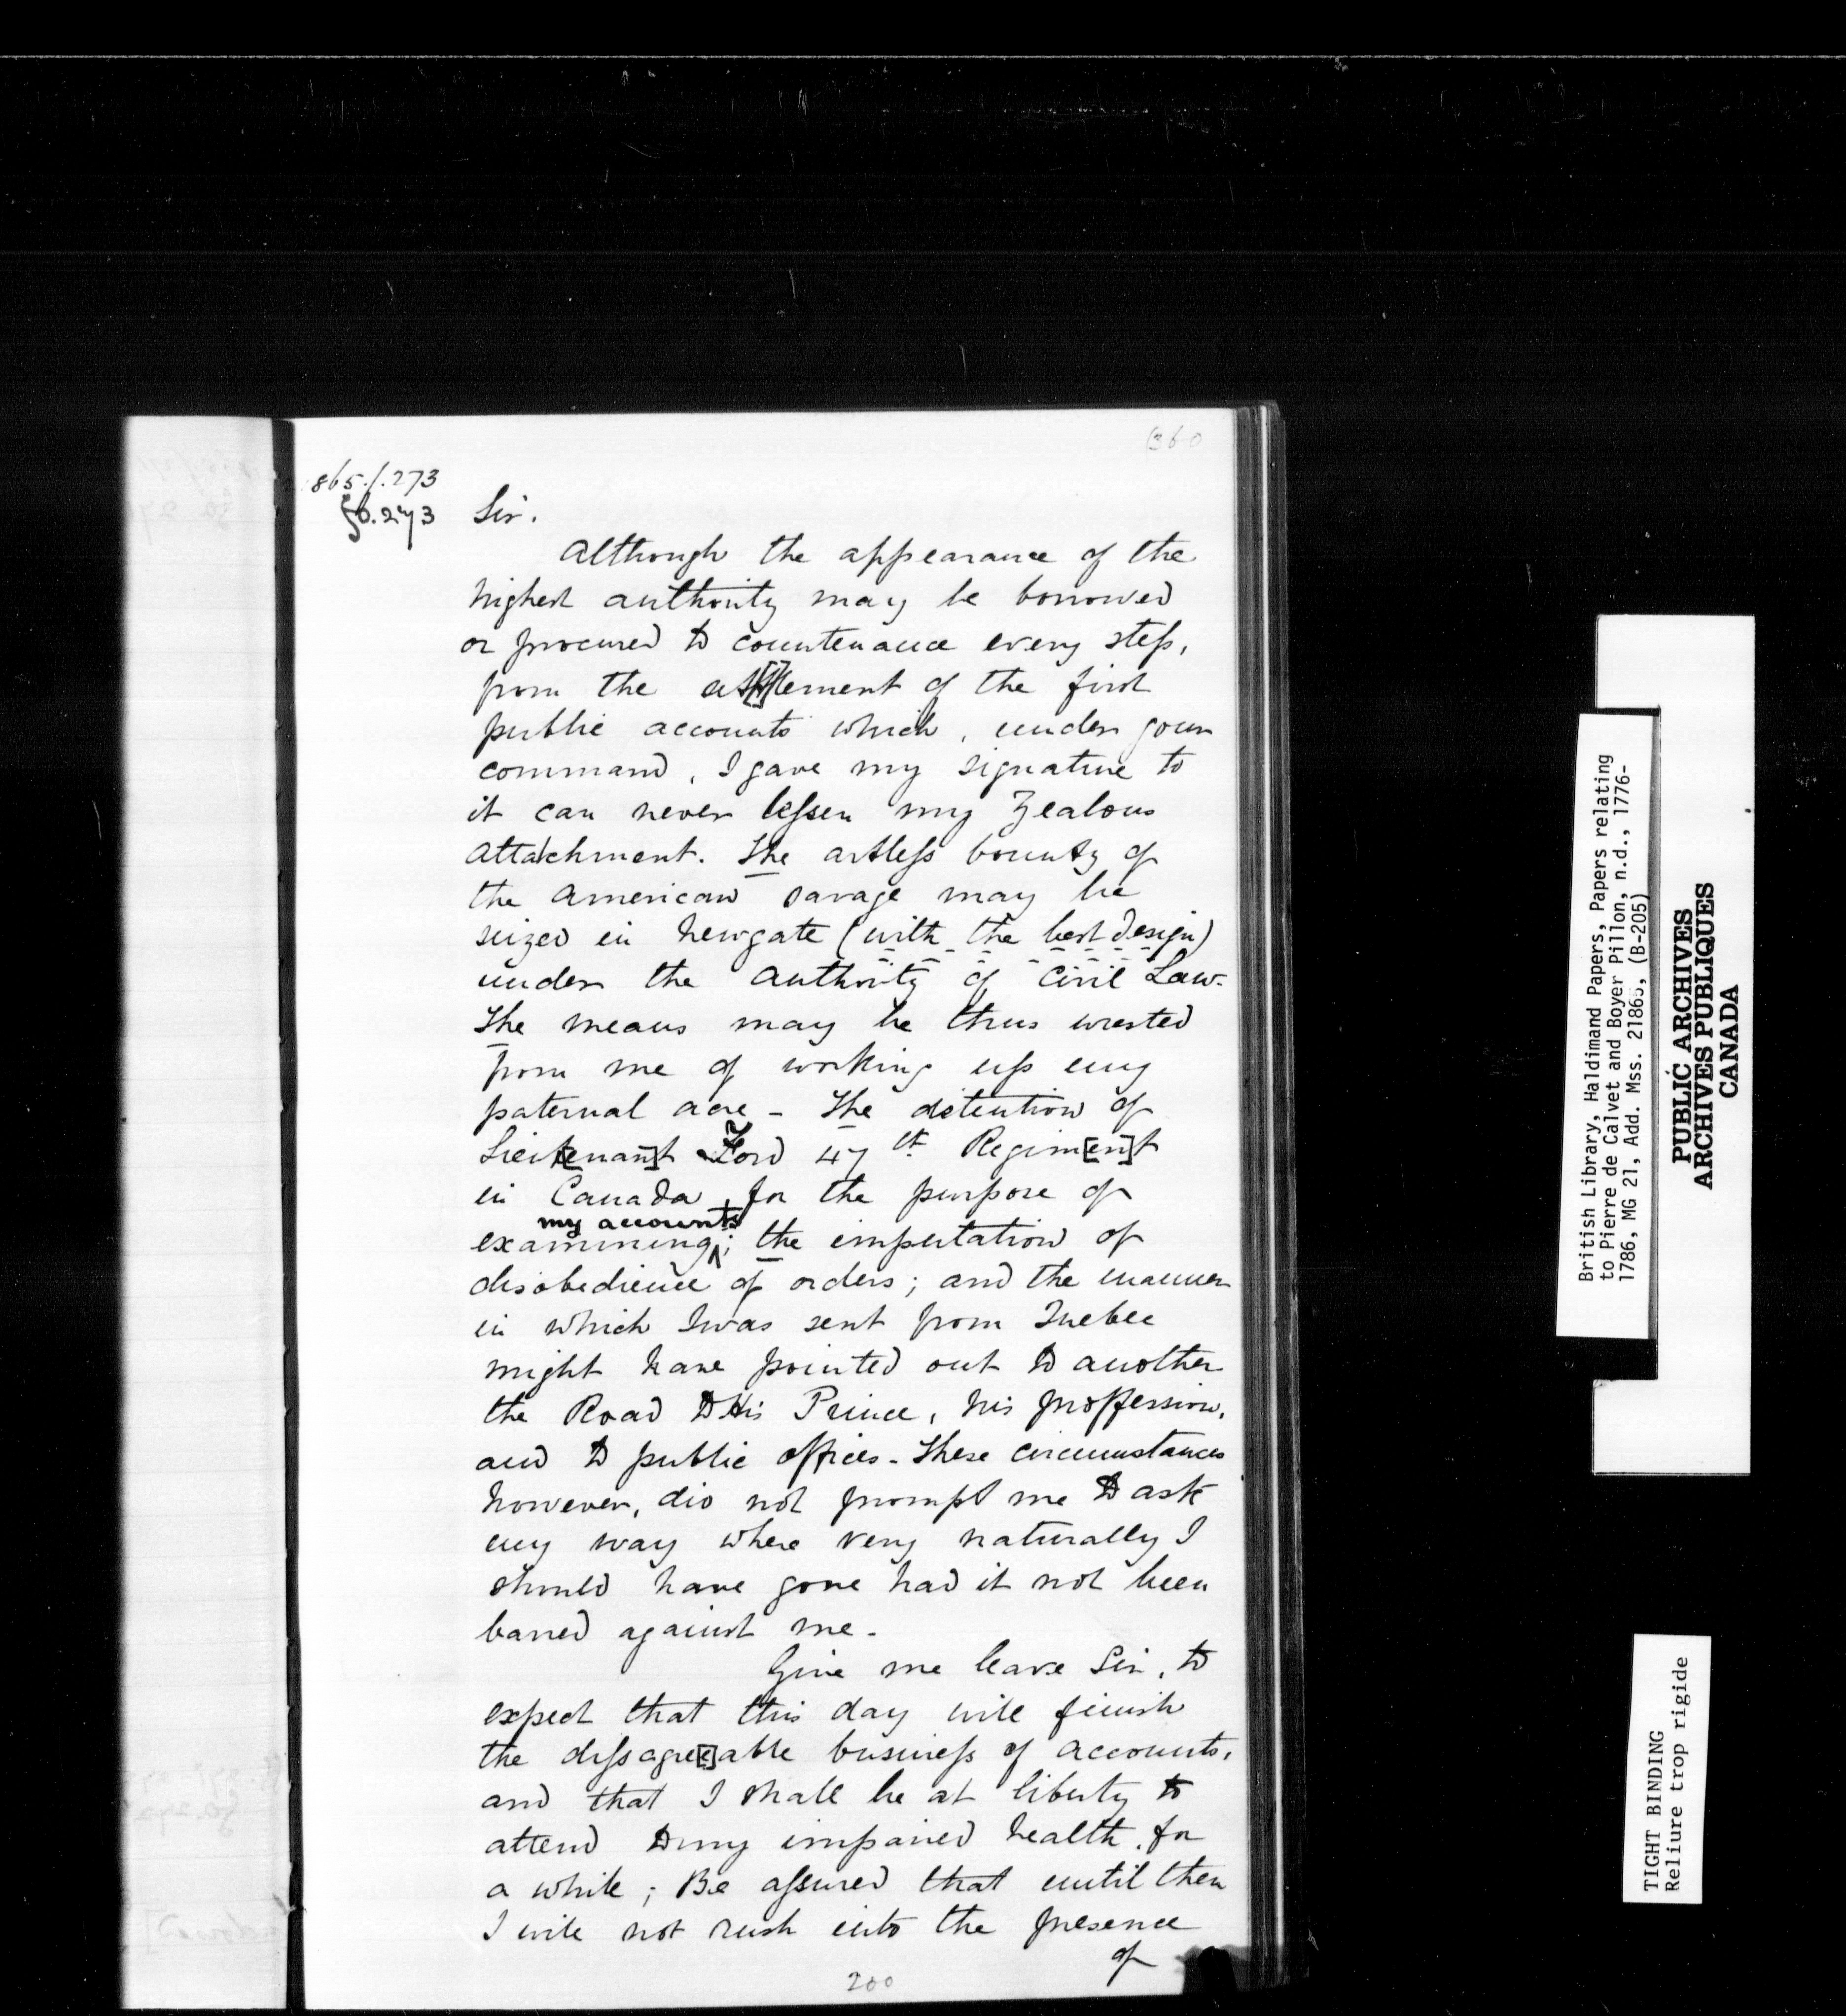 360
865.f.273
fo.273
Sir.
Although the appearance of the
highest authority may be borrowed
or procured to countenance every step,
from the settlement of the first
public accounts which, under your
command, I gave my signature to
it can never lessen my Zealous
attachment. The artless bounty of
the American savage may be
seized in Newgate (with the best design)
under the authority of Civil Law.
The means may be thus wrested
from me of working up my
paternal acre - The detention of
Lieu[tenan]t Ford 47th Regim[en]t
in Canada, for the purpose of
my accounts
examining; the imputation of
disobedience of orders; and the manner
in which I was sent from Quebec
might have pointed out to another
the Road to His Prince, his proffession,
and to public offices - These circumstances
however, did not prompt me to ask
my way where very naturally I
should have gone had it not been
barred against me -
Give me leave Sir, to
expect that this day will finish
the dissagre[e]able business of accounts,
and that I shall be at liberty to
attend to my impaired health, for
a while; Be assured that until then
I will not rush into the presence
of
200
British Library, Haldimand Papers, Papers relating
to Pierre de Calvet and Boyer Pillon, n.d., 1776-
1786, MG 21, Add. Mss. 21865, (B-205)
PUBLIC ARCHIVES
ARCHIVES PUBLIQUES
CANADA
TIGHT BINDING
Reliure trop rigide